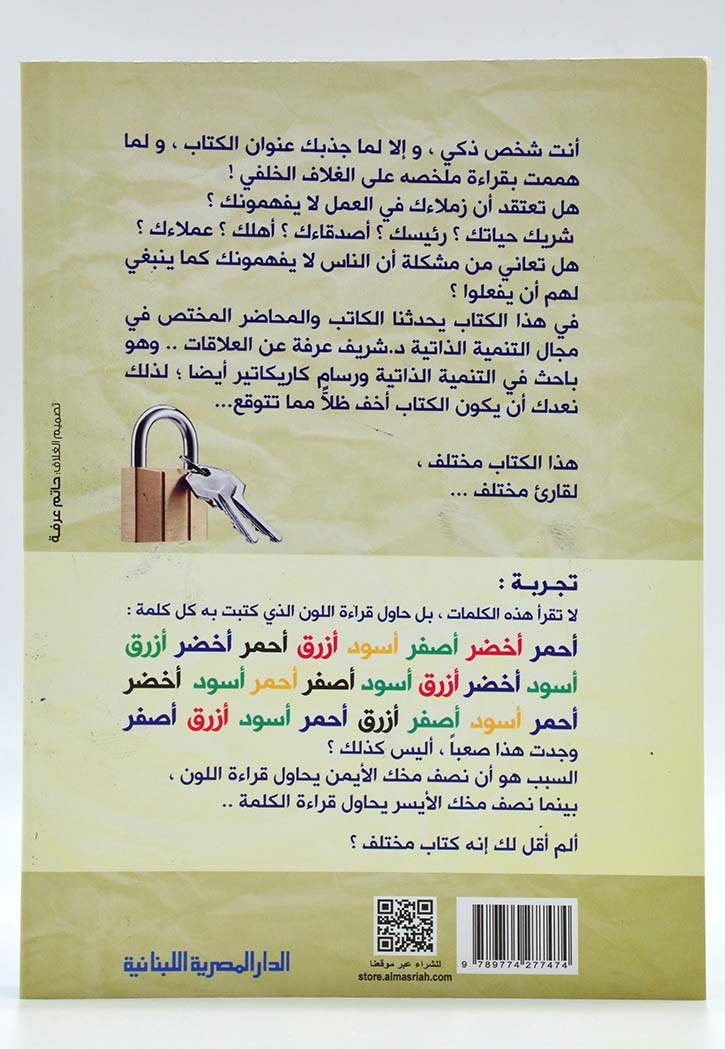 أنت شخص ذكي ، و إلا لما جذبك عنوان الكتاب ، و لما
هممت بقراءة ملخصه على الغلاف الخلفي !
هل تعتقد أن زملاءك في العمل لا يفهمونك ؟
شريك حياتك ؟ رئيسك ؟ أصدقاءك ؟ أهلك ؟ عملاءك ؟
هل تعاني من مشكلة أن الناس لا يفهمونك كما ينبغي
لهم أن يفعلوا ؟
في هذا الكتاب يحدثنا الكاتب والمحاضر المختص في
مجال التنمية الذاتية د.شريف عرفة عن العلاقات .. وهو
باحث في التنمية الذاتية ورسام كاريكاتير أيضا ؛ لذلك
نعدك أن يكون الكتاب أخف ظلاًّ مما تتوقع...
هذا الكتاب مختلف ،
لقارئ مختلف ...
تصميم الغلاف: حاتم عرفة
تجربة :
لا تقرأ هذه الكلمات ، بل حاول قراءة اللون الذي كتبت به كل كلمة :
أحمر أخضر أصفر أسود أزرق أحمر أخضر أزرق
أسود أخضر أزرق أسود أصفر أحمر أسود أخضر
أحمر أسود أصفر أزرق أحمر أسود أزرق أصفر
وجدت هذا صعباً ، أليس كذلك ؟
السبب هو أن نصف مخك الأيمن يحاول قراءة اللون ،
بينما نصف مخك الأيسر يحاول قراءة الكلمة ..
ألم أقل لك إنه كتاب مختلف ؟
9 789774 277474
للشراء عبر موقعنا
store.almasriah.com
الدار المصرية اللبنانية